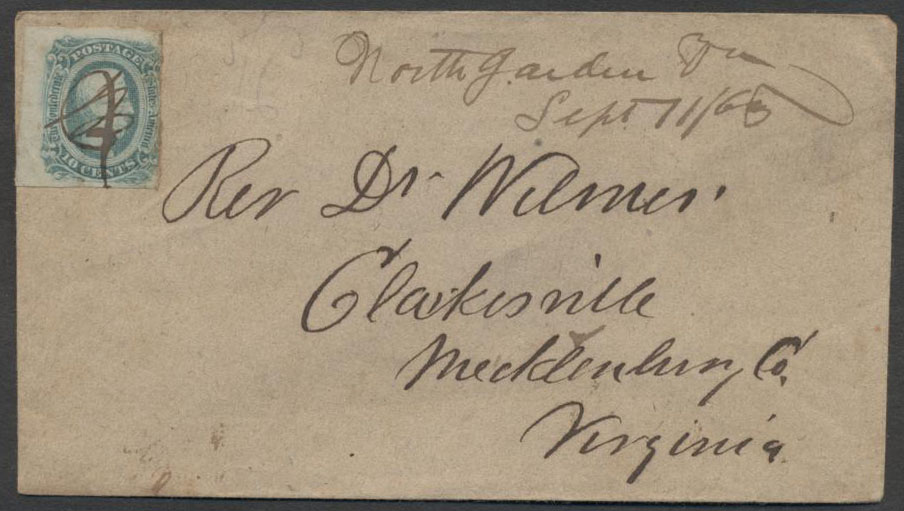 POSTAGE
The Confederate States of America
10 CENTS
North Garden Va
Sept 11/63
Rev Dr. Wilmer
Clarkesville
Mecklenburg Co.
Virginia